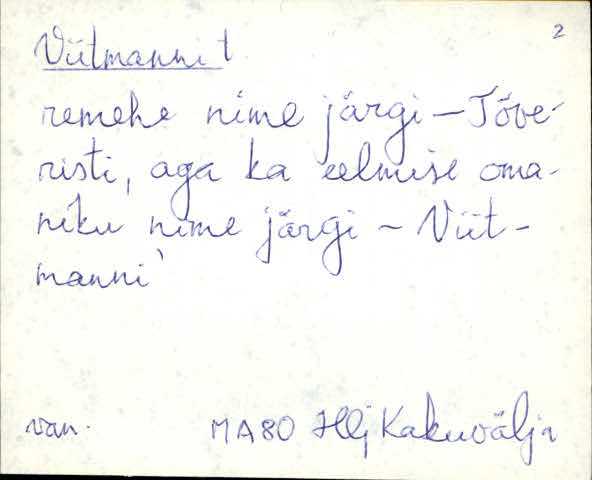 2
Viitmanni t
remehe nime järgi – Tõve-
risti, aga ka eelmise oma-
niku nime järgi – Viit-
manni'
van. MA80 Hlj Kakuvälja